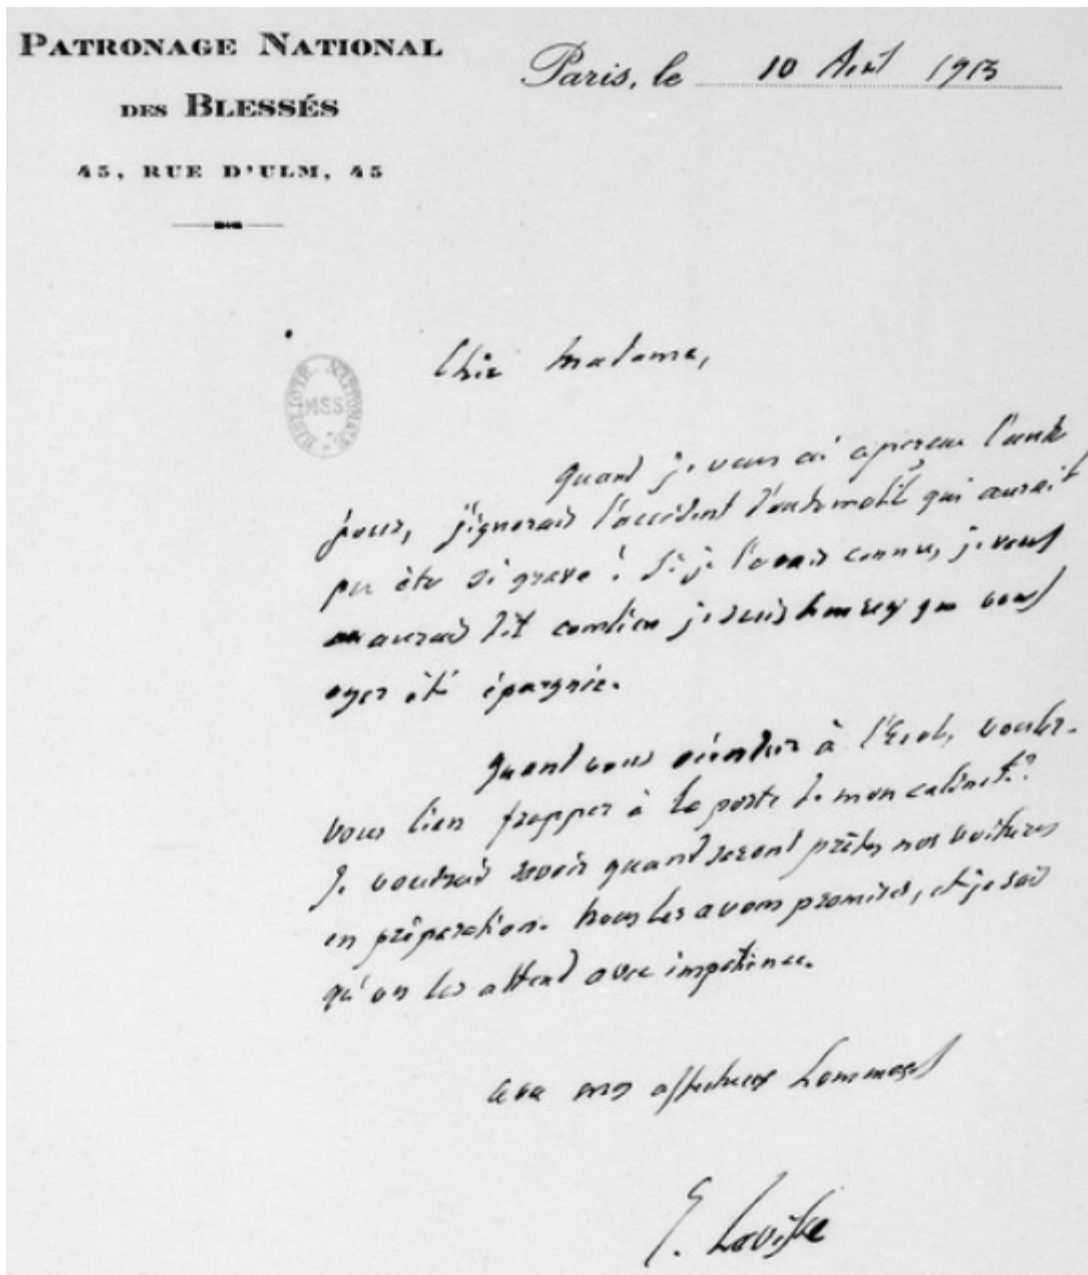 PATRONAGE NATIONAL
DES BLESSÉS
45, RUE D'ULM, 45
Paris, le 10 Août 1915
BIBLIOTH. NATIONALE
MSS
Chère Madame,
Quand je vous ai aperçue l'autre
jour, j'ignorais l'accident d'automobile qui aurait
pu être si grave ! Si je l'avais connu, je vous
aurais dit combien je suis heureux que vous
ayez été épargnée.
Quand vous viendrez à l'École, voulez-
vous bien frapper à la porte de mon cabinet ?
Je voudrais savoir quand seront prêtes nos voitures
en préparation. Nous les avons promises, et je sais
qu'on les attend avec impatience.
avec mes affectueux hommages
E. Lavisse